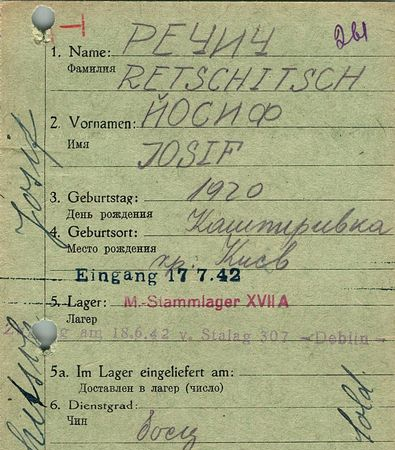 РЕЧИЧ
1. Name:
Фамилия
RETSCHITSCH
2. Vornamen: ЙОСИФ
Имя
JOSIF
3. Geburtstag: 1920
День рождения
4. Geburtsort: Каштиривка
Место рождения
кр. Києв
Eingang 17 7.42
5. Lager: M.-Stammlager XVII A
Лагер
am 18.6.42 v. Stalag 307 -Deblin-
5a. Im Lager eingeliefert am:
Доставлен в лагер (число)
6. Dienstgrad:
Чин
боєц
Josif
Sold.